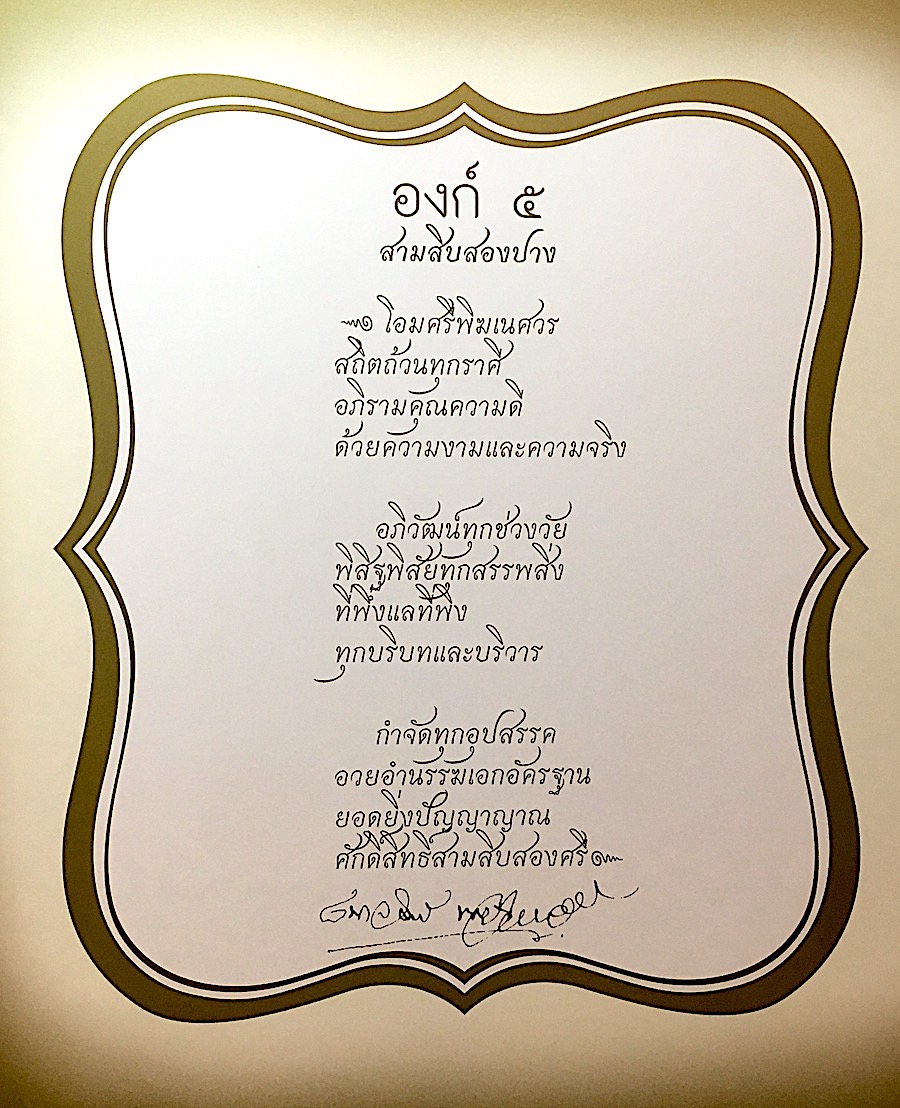 องก์ ๕
สามสิบสองปาง
๛๑ โอมศรีพิฆเนศวร
สถิตถ้วนทุกราศี
อภิรามคุณความดี
ด้วยความงามและความจริง
อภิวัฒน์ทุกช่วงวัย
พิสิฐพิสัยทุกสรรพสิ่ง
ที่พึ่งแลที่พึง
ทุกบริบทและบริวาร
กำจัดทุกอุปสรรค
อวยอำนรรฆเอกอัครฐาน
ยอดยิ่งปัญญาญาณ
ศักดิ์สิทธิ์สามสิบสองศรี๛